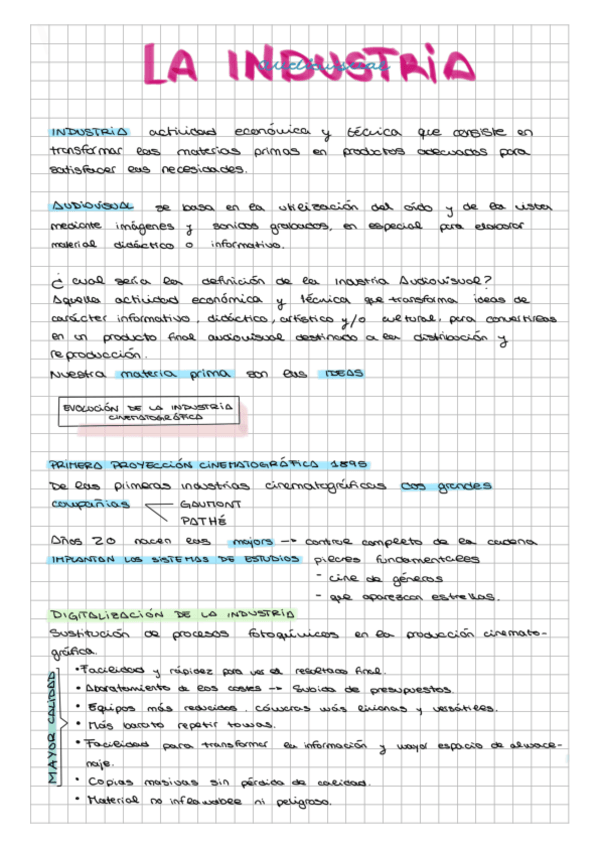 LA INDUSTRIA
audiovisual
INDUSTRIA actividad económica y técnica que consiste en
transformar las materias primas en productos adecuados para
satisfacer las necesidades.
AUDIOVISUAL se basa en la utilización del oído y de la vista
mediante imágenes y sonidos grabados, en especial para elaborar
material didáctico o informativo.
¿ cual sería la definición de la Industria Audiovisual?
Aquella actividad económica y técnica que transforma ideas de
carácter informativo, didáctico, artístico y/o cultural, para convertirlas
en un producto final audiovisual destinado a la distribución y
reproducción.
Nuestra materia prima son las IDEAS
EVOLUCIÓN DE LA INDUSTRIA
CINEMATOGRÁFICA
PRIMERA PROYECCIÓN CINEMATOGRÁFICA 1895
De las primeras industrias cinematográficas dos grandes
compañías
GAUMONT
PATHÉ
Años 20 nacen las majors → control completo de la cadena
IMPLANTAN LOS SISTEMAS DE ESTUDIOS pilares fundamentales
- cine de géneros
- que aparezcan estrellas.
DIGITALIZACIÓN DE LA INDUSTRIA
Sustitución de procesos fotoquímicos en la producción cinemato-
gráfica.
MAYOR CALIDAD
• Facilidad y rápidez para ver el resultado final.
• Abaratamiento de los costes → Subida de presupuestos.
• Equipos más reducidos, cámaras más livianas y versátiles.
• Más barato repetir tomas.
• Facilidad para transformar la información y mayor espacio de almace-
naje.
• Copias masivas sin pérdida de calidad.
• Material no inflamable ni peligroso.